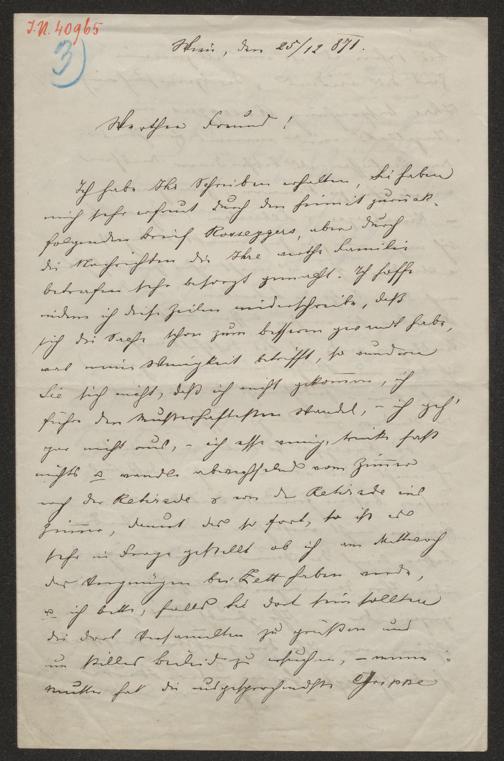 I.N. 40965
3)
Wien, den 25/12 871.
Werther Freund!
Ich habe Ihr Schreiben erhalten, Sie haben
mich sehr erfreut durch den hiemit zurück-
folgenden Brief Roseggers, aber durch
die Nachrichten die Ihre werthe Familie
betrafen sehr besorgt gemacht. Ich hoffe
indem ich diese Zeilen niederschreibe, daß
sich die Sache schon zum bessern gewandt habe,
was meine Wenigkeit betrifft, so wundern
Sie sich nicht, daß ich nicht gekommen, ich
führe den musterhaftesten Wandel, – ich geh'
gar nicht aus, – ich esse wenig, trinke fast
nichts & wandle abwechselnd vom Zimmer
nach der Retirade & von der Retirade ins
Zimmer, dauert das so fort, so ist es
sehr in Frage gestellt ob ich am Mittwoch
das Vergnügen bei Zett haben werde,
& ich bitte, falls Sie dort sein sollten
die dort Versammelten zu grüßen und
um stilles Beileid zu ersuchen, – meine
Mutter hat die ausgesprochendste Grippe